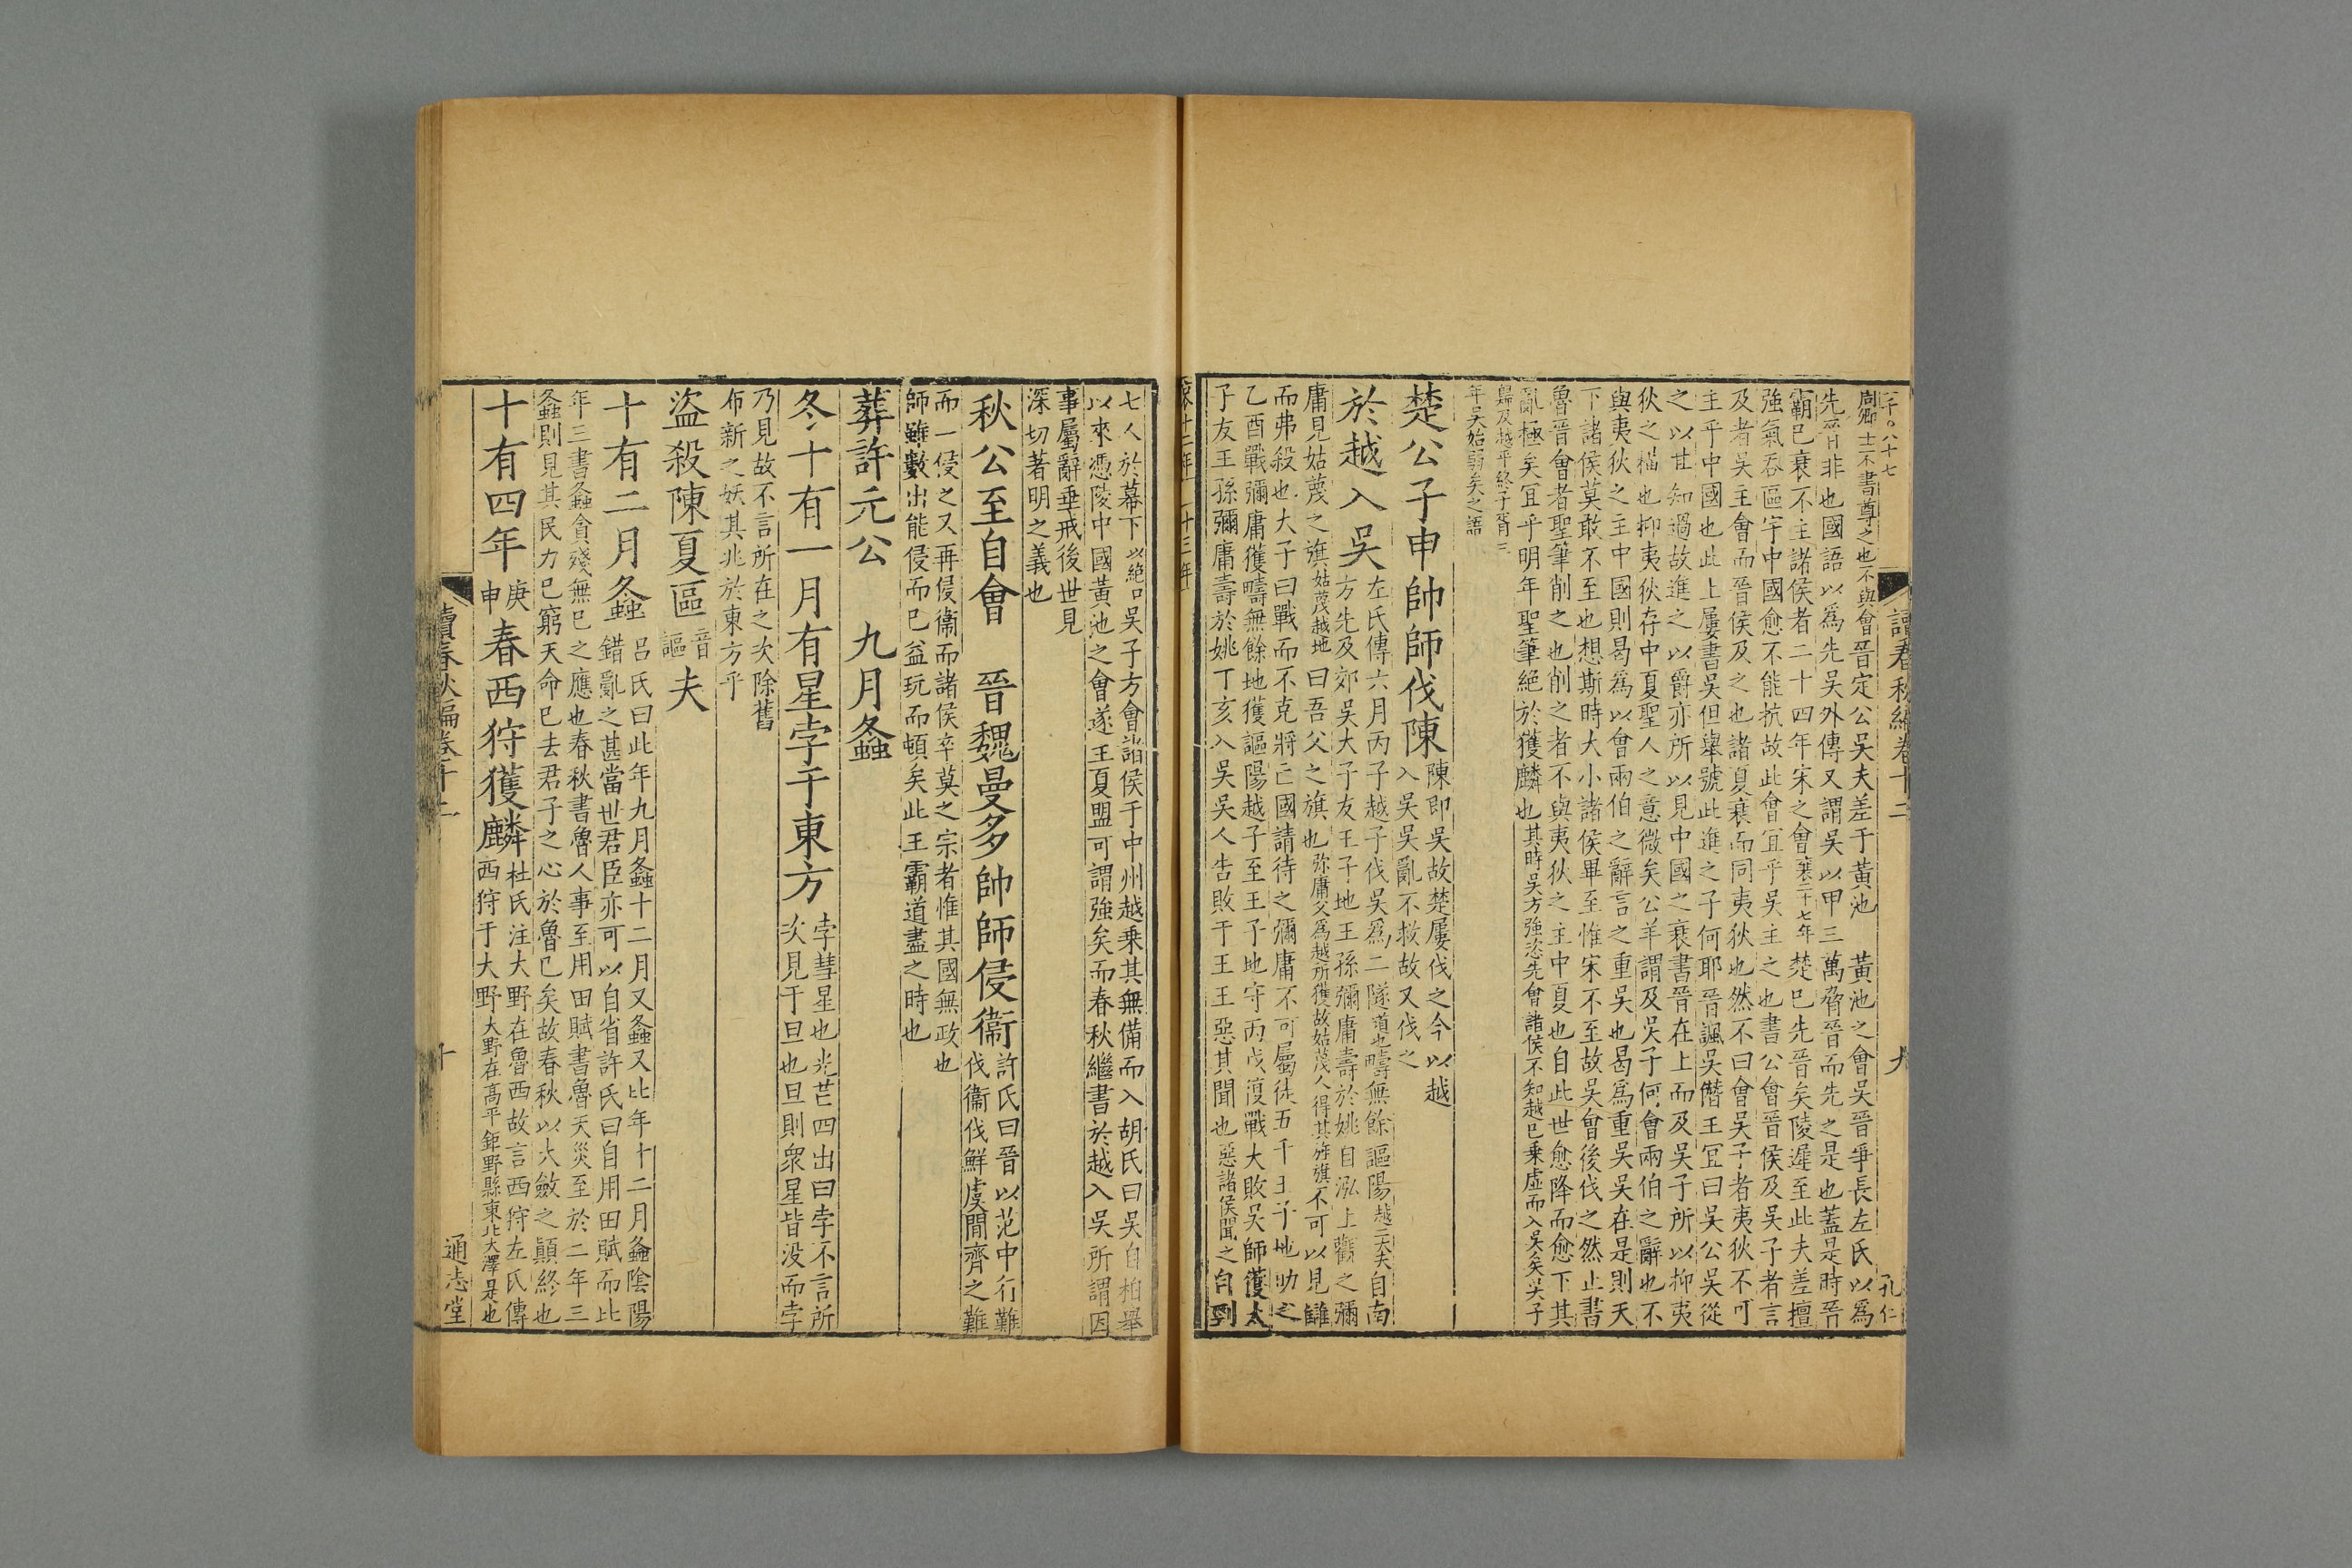 二千〇八十七
讀春秋編卷十二
九
孔仁
周卿士不書尊之也不與會晉定公吳夫差于黃池 黃池之會吳晉爭長左氏以為
先晉非也國語以為先吳外傳又謂吳以甲三萬脅晉而先之是也蓋是時晉
霸已衰不主諸侯者二十四年宋之會襄二十七年楚已先晉矣陵遲至此夫差擅
強氣吞區宇中國愈不能抗故此會宜乎吳主之也書公會晉侯及吳子者言
及者吳主會而晉侯及之也諸夏衰而同夷狄也然不曰會吳子者夷狄不可
主乎中國也此上屢書吳但舉號此進之子何耶晉諷吳僭王宜曰吳公吳從
之以其知過故進之以爵亦所以見中國之衰書晉在上而及吳子所以抑夷
狄之猖也抑夷狄存中夏聖人之意微矣公羊謂及吳子何會兩伯之辭也不
與夷狄之主中國則曷為以會兩伯之辭言之重吳也曷為重吳吳在是則天
下諸侯莫敢不至也想斯時大小諸侯畢至惟宋不至故吳會後伐之然止書
魯晉會者聖筆削之也削之者不與夷狄之主中夏也自此世愈降而愈下其
亂極矣宜乎明年聖筆絕於獲麟也其時吳方強恣先會諸侯不知越已乘虛而入吳矣吳子
歸及越平終子胥三
年吳始弱矣之語
楚公子申帥師伐陳陳即吳故楚屢伐之今以越
入吳吳亂不救故又伐之
於越入吳左氏傳六月丙子越子伐吳為二隧道也疇無餘謳陽越二大夫自南
方先及郊吳大子友王子地王孫彌庸壽於姚自泓上觀之彌
庸見姑蔑之旗姑蔑越地曰吾父之旗也弥庸父為越所獲故姑蔑人得其旌旗不可以見讎
而弗殺也大子曰戰而不克將亡國請待之彌庸不可屬徒五千王子地助之
乙酉戰彌庸獲疇無餘地獲謳陽越子至王子地守丙戌復戰大敗吳師獲太
子友王孫彌庸壽於姚丁亥入吳吳人告敗于王王惡其聞也惡諸侯聞之自剄
哀十二年 十三年
七人於幕下以絕口吳子方會諸侯于中州越乘其無備而入胡氏曰吳自柏舉
以來憑陵中國黃池之會遂王夏盟可謂強矣而春秋繼書於越入吳所謂因
事屬辭垂戒後世見
深切著明之義也
秋公至自會 晉魏曼多帥師侵衞許氏曰晉以范中行難
伐衞伐鮮虞閒齊之難
而一侵之又再侵衞而諸侯卒莫之宗者惟其國無政也
師雖數出能侵而已益玩而頓矣此王霸道盡之時也
葬許元公 九月螽
冬十有一月有星孛于東方孛彗星也光芒四出曰孛不言所
次見于旦也旦則衆星皆没而孛
乃見故不言所在之次除舊
布新之妖其兆於東方乎
盜殺陳夏區音
謳夫
十有二月螽呂氏曰此年九月螽十二月又螽又比年十二月螽陰陽
錯亂之甚當世君臣亦可以自省許氏曰自用田賦而比
年三書螽貪殘無已之應也春秋書魯人事至用田賦書魯天災至於二年三
螽則見其民力已窮天命已去君子之心於魯已矣故春秋以大斂之顛終也
十有四年庚
申春西狩獲麟杜氏注大野在魯西故言西狩左氏傳
西狩于大野大野在高平鉅野縣東北大澤是也
讀春秋編卷十二
十
通志堂